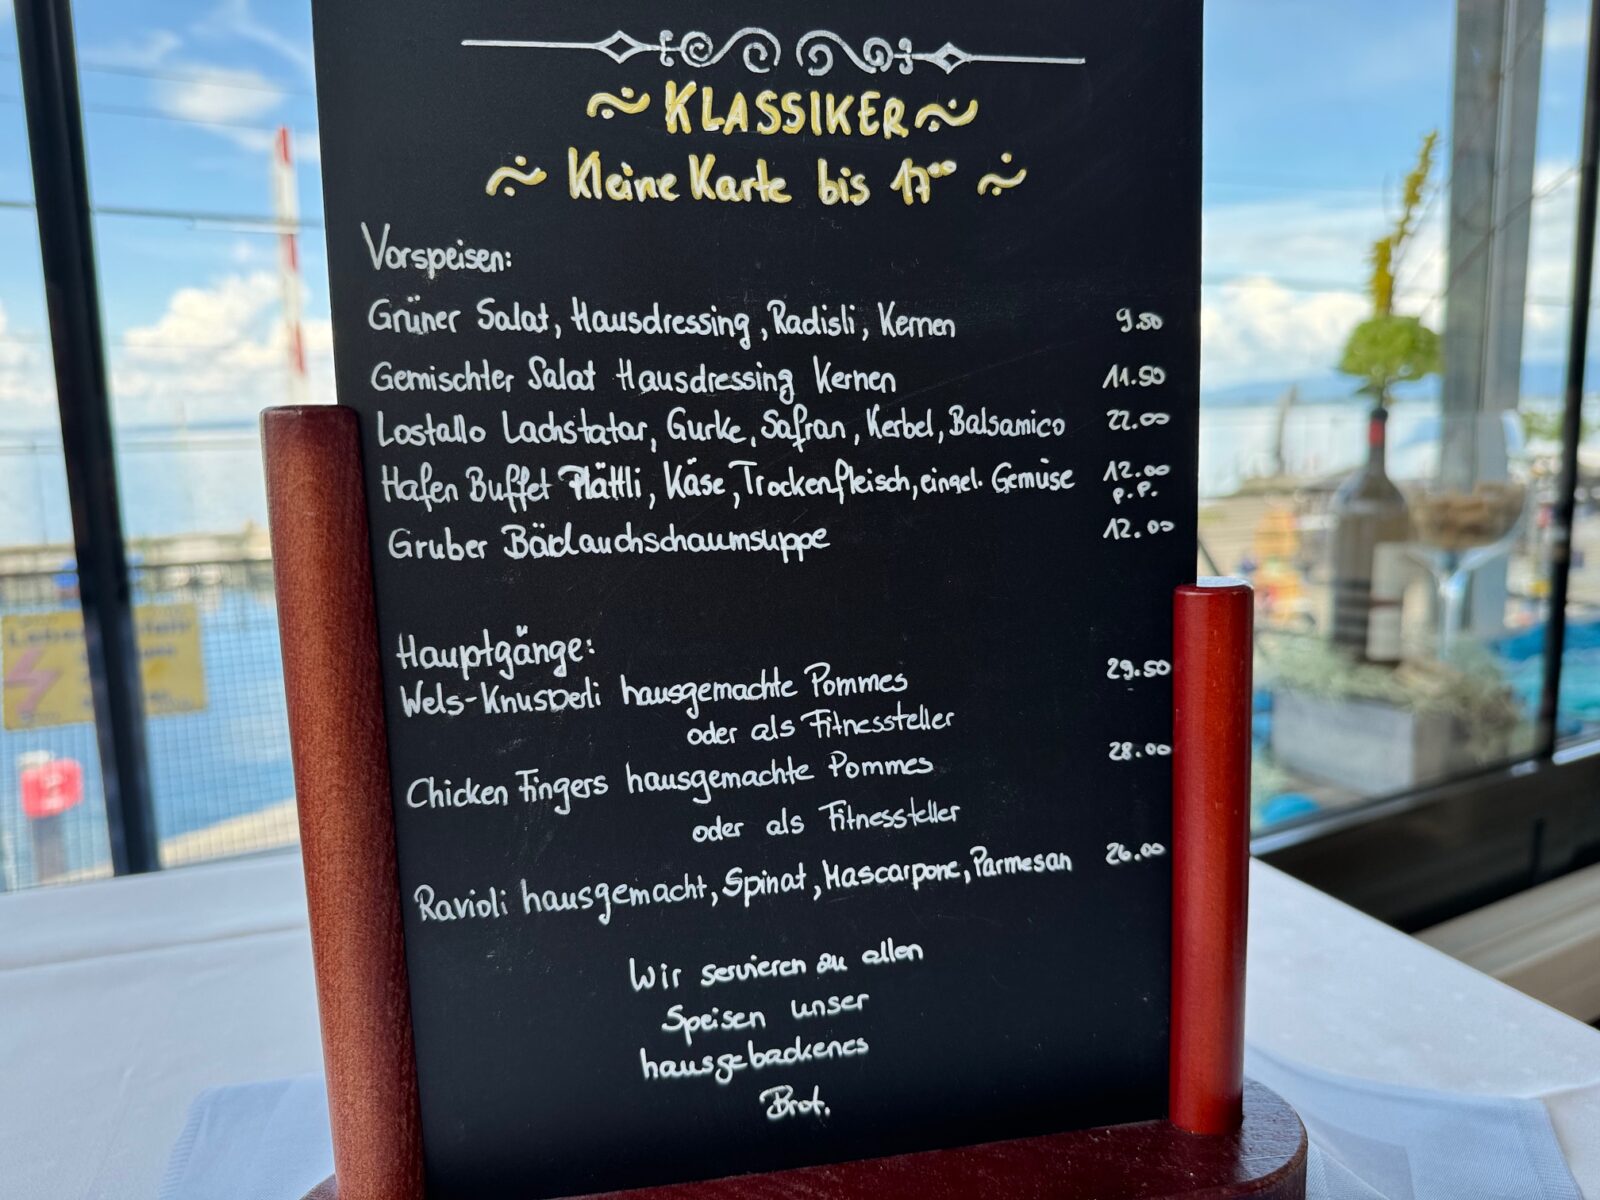 KLASSIKER
Kleine Karte bis 17⁰⁰
Vorspeisen:
Grüner Salat, Hausdressing, Radisli, Kernen 9.50
Gemischter Salat Hausdressing Kernen 11.50
Lostallo Lachstatar, Gurke, Safran, Kerbel, Balsamico 22.00
Hafen Buffet Plättli, Käse, Trockenfleisch, eingel. Gemüse 12.00
p.P.
Gruber Bärlauchschaumsuppe 12.00
Hauptgänge:
Wels-Knusperli hausgemachte Pommes 29.50
oder als Fitnessteller
Chicken Fingers hausgemachte Pommes 28.00
oder als Fitnessteller
Ravioli hausgemacht, Spinat, Mascarpone, Parmesan 26.00
Wir servieren zu allen
Speisen unser
hausgebackenes
Brot.